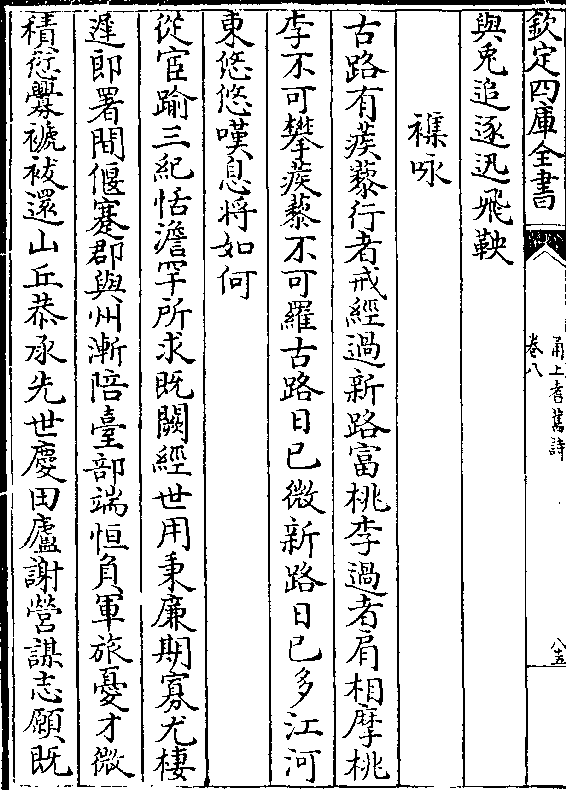 欽定四庫全書
甬上耆舊詩
卷八
八五
與兎追逐迅飛鞅
襍咏
古路有蒺藜行者戒經過新路富桃李過者肩相摩桃
李不可攀蒺藜不可羅古路日已微新路日已多江河
東悠悠嘆息将如何
從宦踰三紀恬澹罕所求既闕經世用秉廉期寡尤棲
遲郎署間偃蹇郡與州漸陪臺部端恒負軍旅憂才微
積愆釁褫袚還山丘恭承先世慶田廬謝營謀志願既